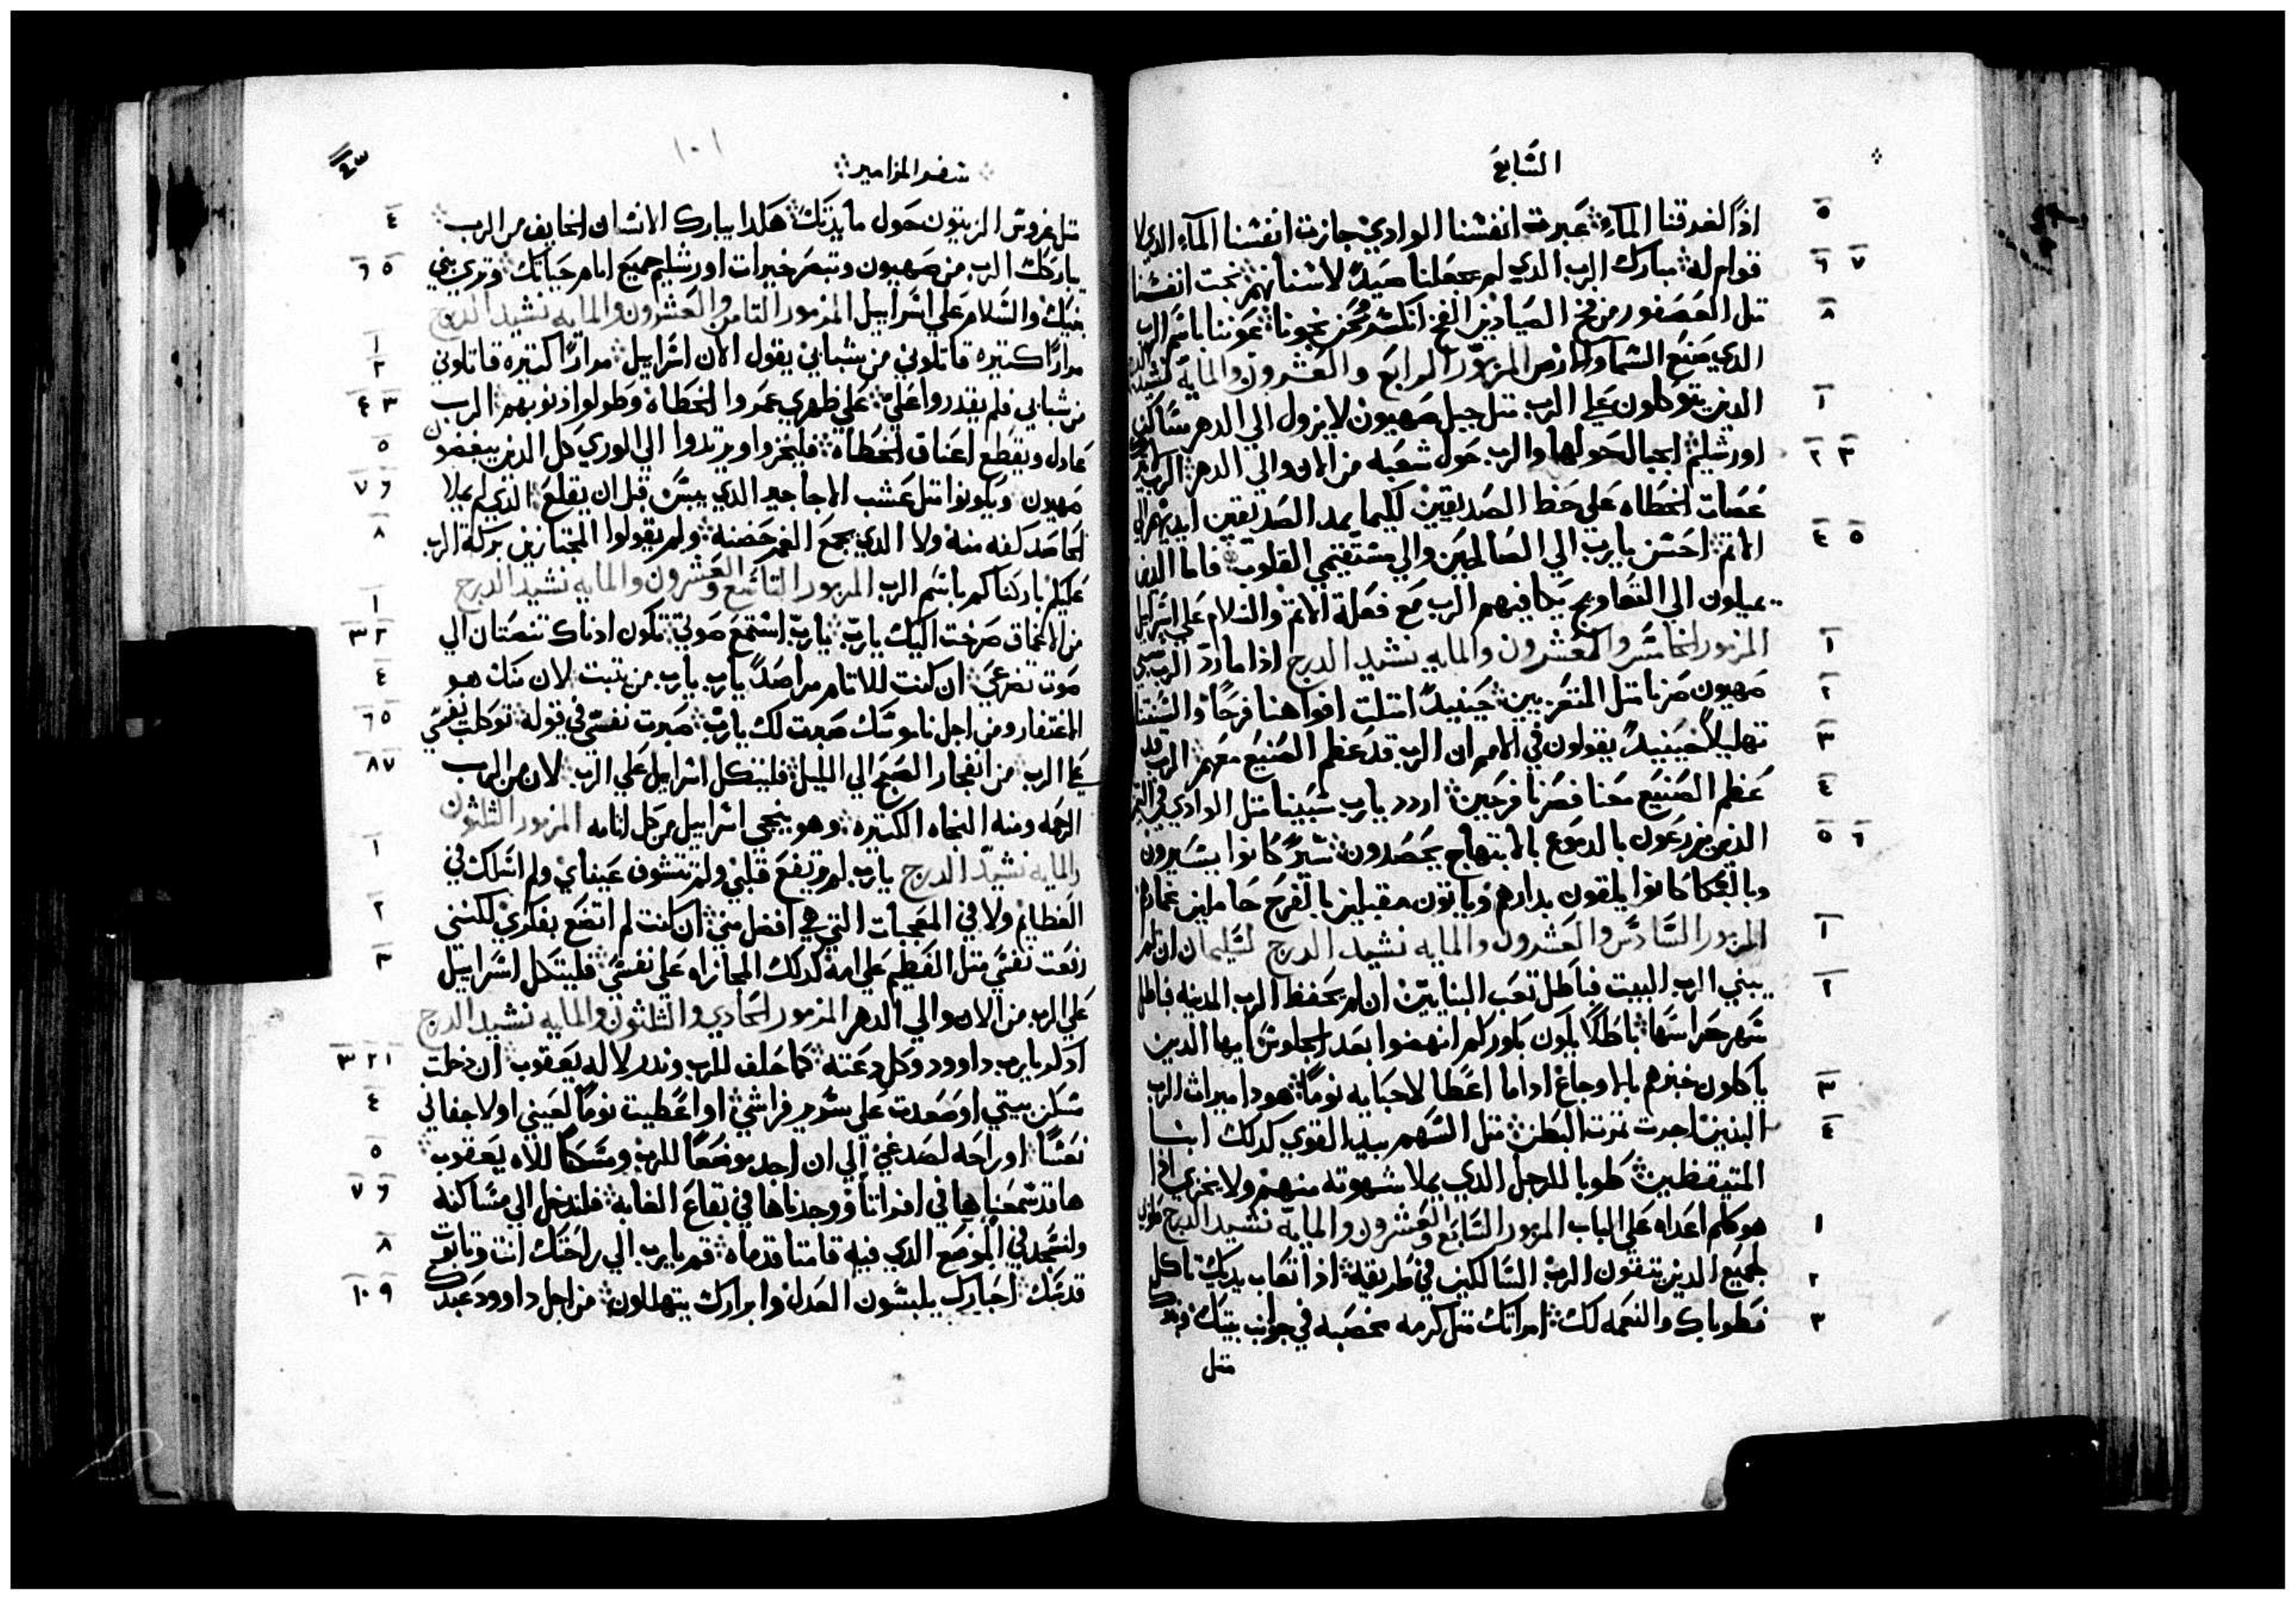 السابع
اذًا لغرقنا المآء عبرت انفسنا الوادي جازت انفسنا المآء الدي لا
قوام له مبارك الرب الدي لم يجعلنا صيدًا لاسنانهم نجت انفسنا
متل العصفور من فخ الصيادين الفخ انكسر ونحن نجونا عوننا باسم الرب
الدي صنع السما والارض المزمور الرابع والعشرون والمايه نشيد الدرج
الدين يتوكلون علي الرب متل جبل صهيون لا يزول الي الدهر ساكن
اورشليم الجبال حولها والرب حول شعبه من الان والي الدهر الرب
عصات الخطاه علي حظ الصديقين لكيما يمد الصديقين ايديهم الي
الاتم احسن يارب الي الصالحين والي مستقيمي القلوب فاما الدين
يميلون الي التعاويج يكافيهم الرب مع فعلة الاتم والسلام علي اسراييل
المزمور الخامس والعشرون والمايه نشيد الدرج اذا ما ردّ الرب سبي
صهيون صرنا متل المتعزيين حينيدً امتلت افواهنا فرحًا والسنتنا
تهليلاً حينيدً يقولون في الامم ان الرب قد عظم الصنيع معهم الرب قد
عظم الصنيع معنا فصرنا فرحين اردد يارب سبينا متل الوادي في التيمن
الدين يزرعون بالدموع بالابتهاج يحصدون سيرً كانوا يسيرون
وبالبكا كانوا يلقون بدارهم وياتون مقبلين بالفرح حاملين غمارهم
المزمور السادس والعشرون والمايه نشيد الدرج لسليمان ان لم
يبني الرب البيت فباطل تعب البنايين ان لم يحفظ الرب المدينه فباطل
سهر حراسها باطلاً يكون بكوركم انهضوا بعد الجلوس ايها الدين
ياكلون خبزهم بالاوجاع اداما اعطا لاحبايه نومًا هودا ميراث الرب
البنين اجرت تمرت البطن متل السهم بيد القوي كدلك ابنا
المتيقظين طوبا للرجل الدي يملا شهوته منهم ولا يخزي اذا
هو كلم اعداه علي الباب المزمور السابع والعشرون والمايه نشيد الدرج طوبا
لجميع الدين يتقون الرب السالكين في طريقه اذا تعاب يديك تاكل
فطوباك والنعمه لك امراتك متل كرمه مخصبه في جوانب بيتك وبنوك
متل
سفر المزامير
متل غروس الزيتون حول مايدتك هكدا يبارك الانسان الخايف من الرب
يباركك الرب من صهيون وتبصر خيرات اورشليم جميع ايام حياتك وتري بني
بنيك والسلام علي اسراييل المزمور التامن والعشرون والمايه نشيد الدرج
مرارًا كتيره قاتلوني من شبابي يقول الان اسراييل مرارًا كتيره قاتلوني
من شبابي فلم يقدروا علي علي ظهري عمروا الخطاه وطولوا ادنوبهم الرب
عادل ويقطع اعناق الخطاه فليخزوا ويرتدوا الي الوري كل الدين يبغضون
صهيون ويكونوا متل عشب الاجاجير الدي ييبس قبل ان يقلع الذي لم يملا
الحاصد كفه منه ولا الدي يجمع الغمر حضنه ولم يقولوا المجتازين بركة الرب
عليكم باركناكم باسم الرب المزمور التاسع والعشرون والمايه نشيد الدرج
من الاعماق صرخت اليك يارب يارب استمع صوتي تكون ادناك تنصتان الي
صوت تضرعي ان كنت للاتام مراصدًا يارب يارب من يتبت لان منك هو
الاغتفار ومن اجل ناموسك صبرت لك يارب صبرت نفسي في قوله توكلت نفسي
علي الرب من انفجار الصبح الي الليل فليتكل اسراييل علي الرب لان من الرب
الرحمه ومنه النجاه الكتيره وهو ينجي اسراييل من كل اتامه المزمور الثلثون
والمايه نشيد الدرج يارب لم يرتفع قلبي ولم تتشوف عيناي ولم اسلك في
العظايم ولا في المعجبات التي هي افضل مني ان كنت لم اتضع بفكري لكنني
رفعت نفسي متل الفطيم علي امه كدلك المجازاه علي نفسي فليتكل اسراييل
علي الرب من الان والي الدهر المزمور الحادي والثلثون والمايه نشيد الدرج
ادكر يارب داوود وكل دعته كما حلف للرب وندر لاله يعقوب ان دخلت
مسكن بيتي او صعدت علي سرير فراشي او اعطيت نومًا لعيني او لاجفاني
نعسًا او راحه لصدغي الي ان اجد موضعًا للرب ومسكنًا للاه يعقوب
ها قد سمعنا بها في افراتا ووجدناها في بقاع الغابه فلندخل الي مساكنه
ولنسجد في الموضع الدي فيه قامتا قدماه قم يارب الي راحتك انت وتابوت
قدسك احبارك يلبسون العدل وابرارك يتهللون من اجل داوود عبدك